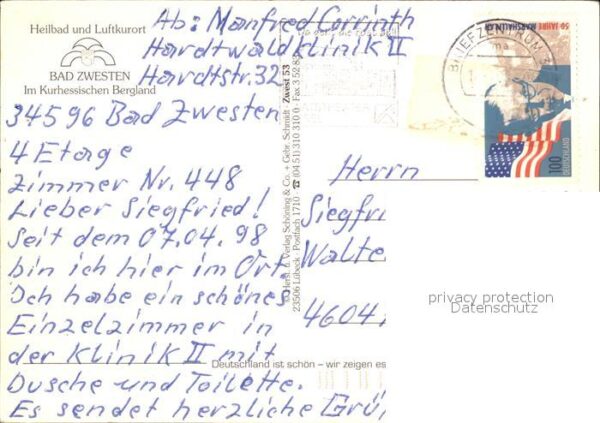 Heilbad und Luftkurort
BAD ZWESTEN
Im Kurhessischen Bergland
Ab: Manfred Corrinth
Hardtwaldklinik II
Hardtstr. 32
34596 Bad Zwesten
4 Etage
Zimmer Nr. 448
Lieber Siegfried!
Seit dem 07.04.98
bin ich hier im Ort.
Ich habe ein schönes
Einzelzimmer in
der Klinik II mit
Dusche und Toilette.
Es sendet herzliche Grü
© Herst. u. Verlag Schöning & Co. + Gebr. Schmidt · Zwest 53
23506 Lübeck · Postfach 1710 · ☎ (0451) 310 310 0 · Fax 3 52 83
Deutschland ist schön – wir zeigen es
BRIEFZENTRUM 3
50 JAHRE MARSHALLPLAN
100
DEUTSCHLAND
Herrn
Siegfri
Walte
4604
privacy protection
Datenschutz